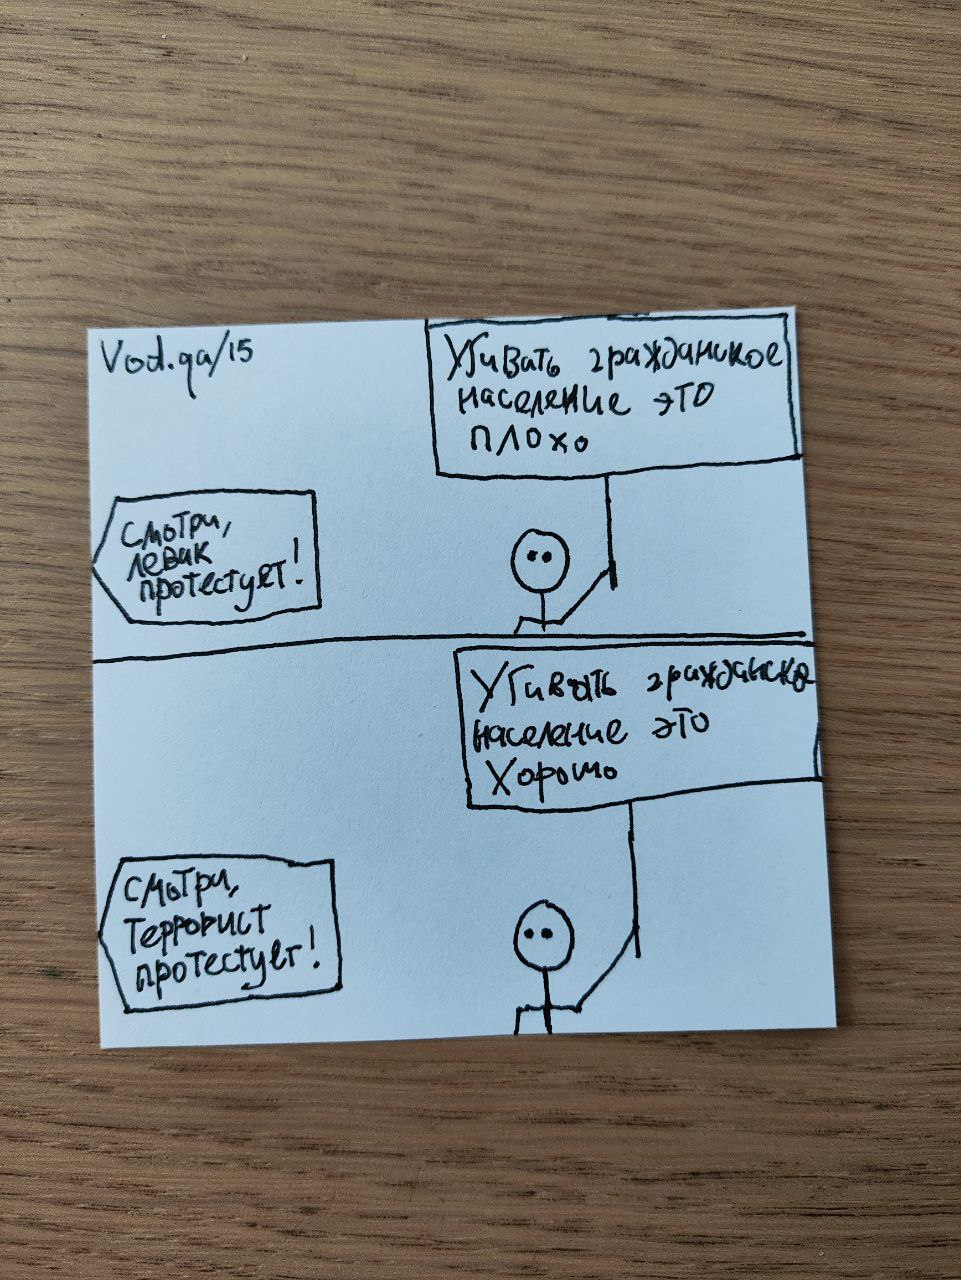 Vod.qa/15
Убивать гражданское
население это
плохо
Смотри,
левак
протестует!
Убивать гражданско
население это
Хорошо
Смотри,
террорист
протестует!